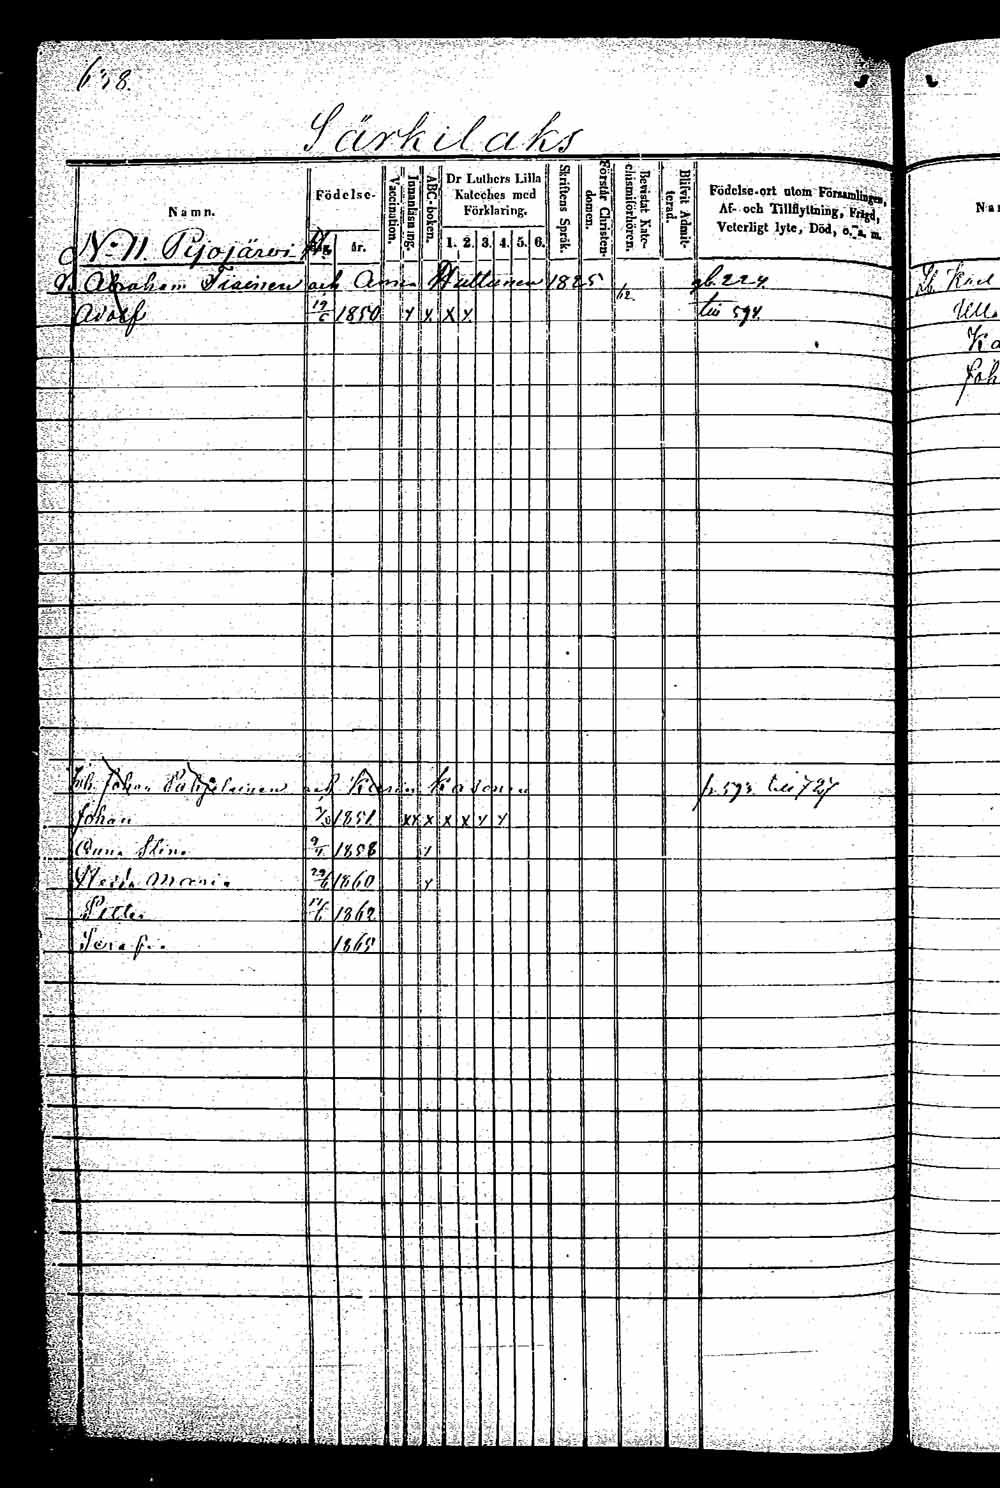 638.
Särkilaks
Namn.
Födelse-
dag. år.
Vaccination.
Innanläsning.
ABC-boken.
Dr Luthers Lilla Kateches med Förklaring.
1. 2. 3. 4. 5. 6.
Skriftens Språk.
Förstår Christendomen.
Bevistat Katechismiförhören.
Blifvit Admitterad.
Födelse-ort utom Församlingen,
Af- och Tillflyttning, Frägd,
Veterligt lyte, Död, o. s. m.
Na
No 11. Pyojärvi
Abraham Tiainen och Anna Huttunen 1825 gb. 224
Adolf 19/6 1850 x x x x till 594
Karl
Ulla
Ka
Joh
Inh. Johan och Karin Kosonen fr. 593 till 727
Johan 1851 xx x x x x x
Anna Stina 1858 x
Hedda Maria 29/6 1860 x
Petter 1862
1865